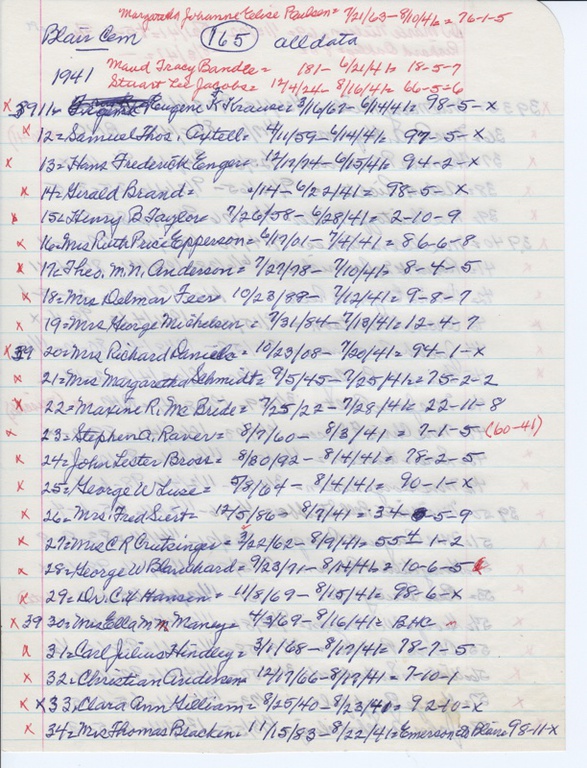 Margaretha Johanne Celise Paulsen= 7/21/63-8/10/41= 76-1-5
Blair Cem 165 all data
1941 Maud Tracy Bandle= 181- 6/21/41= 18-5-7
Stuart Lee Jacobs= 12/4/24-8/16/41= 66-5=6
x 3911= Eugene K Krause= 3/16/67-6/14/41= 98-5-x
x 12=Samuel Thos. Axtell= 4/11/59-6/14/41= 97-5-x
x 13=Hans Frederick Enger= 12/17/74-6/15/41= 94-2-x
x 14=Gerald Brand= 6/14-6/22/41= 98-5-x
x 15=Henry B Taylor= 7/26/58-6/28/41= 2-10-9
x 16=Mrs Ruth Price Epperson= 6/17/01-7/4/41= 86-6-8
x 17=Theo. M.N. Anderson= 7/27/78-7/10/41= 8-4-5
x 18=Mrs Delmar Feer= 10/23/88-7/12/41= 9-8-7
x 19=Mrs George Michelsen= 7/31/84-7/13/41= 12-4-7
x 39 20=Mrs Richard Daniels= 10/23/08-7/20/41= 94-1-x
x 21=Mrs Margaretha Schmidt= 9/5/45-7/25/41= 75-2-2
x 22=Maxine R. McBride= 7/25/22-7/28/41= 22-11-8
x 23=Stephen A. Raver= 8/7/60-8/3/41= 7-1-5 (60-41)
x 24=John Lester Bross= 8/30/92-8/4/41= 78-2-5
x 25=George W Luse= 5/8/64-8/4/41= 90-1-x
x 26=Mrs. Fred Siert= 12/5/86-8/7/41= 34 5-9
x 27=Mrs C R Crutsinger= 3/22/62-8/9/41= 55± 1-2
x 28=George W Blanchard= 9/23/71-8/14/41= 10-6-5
x 29=Dr. C.H Hansen= 11/8/69-8/15/41= 98-6-x
x 39 30=Mrs Ella M Maney= 4/3/69-8/16/41= BHC
x 31=Carl Julius Hindley= 3/11/68-8/17/41= 78-7-5
x 32=Christian Andersen= 12/17/66-8/17/41= 7-10-1
x x 33, Clara Ann Gilliam= 8/25/40-8/23/41= 92-10-x
x 34=Mrs Thomas Bracken= 11/15/83-8/22/41= Emerson to Blair= 98-11-x